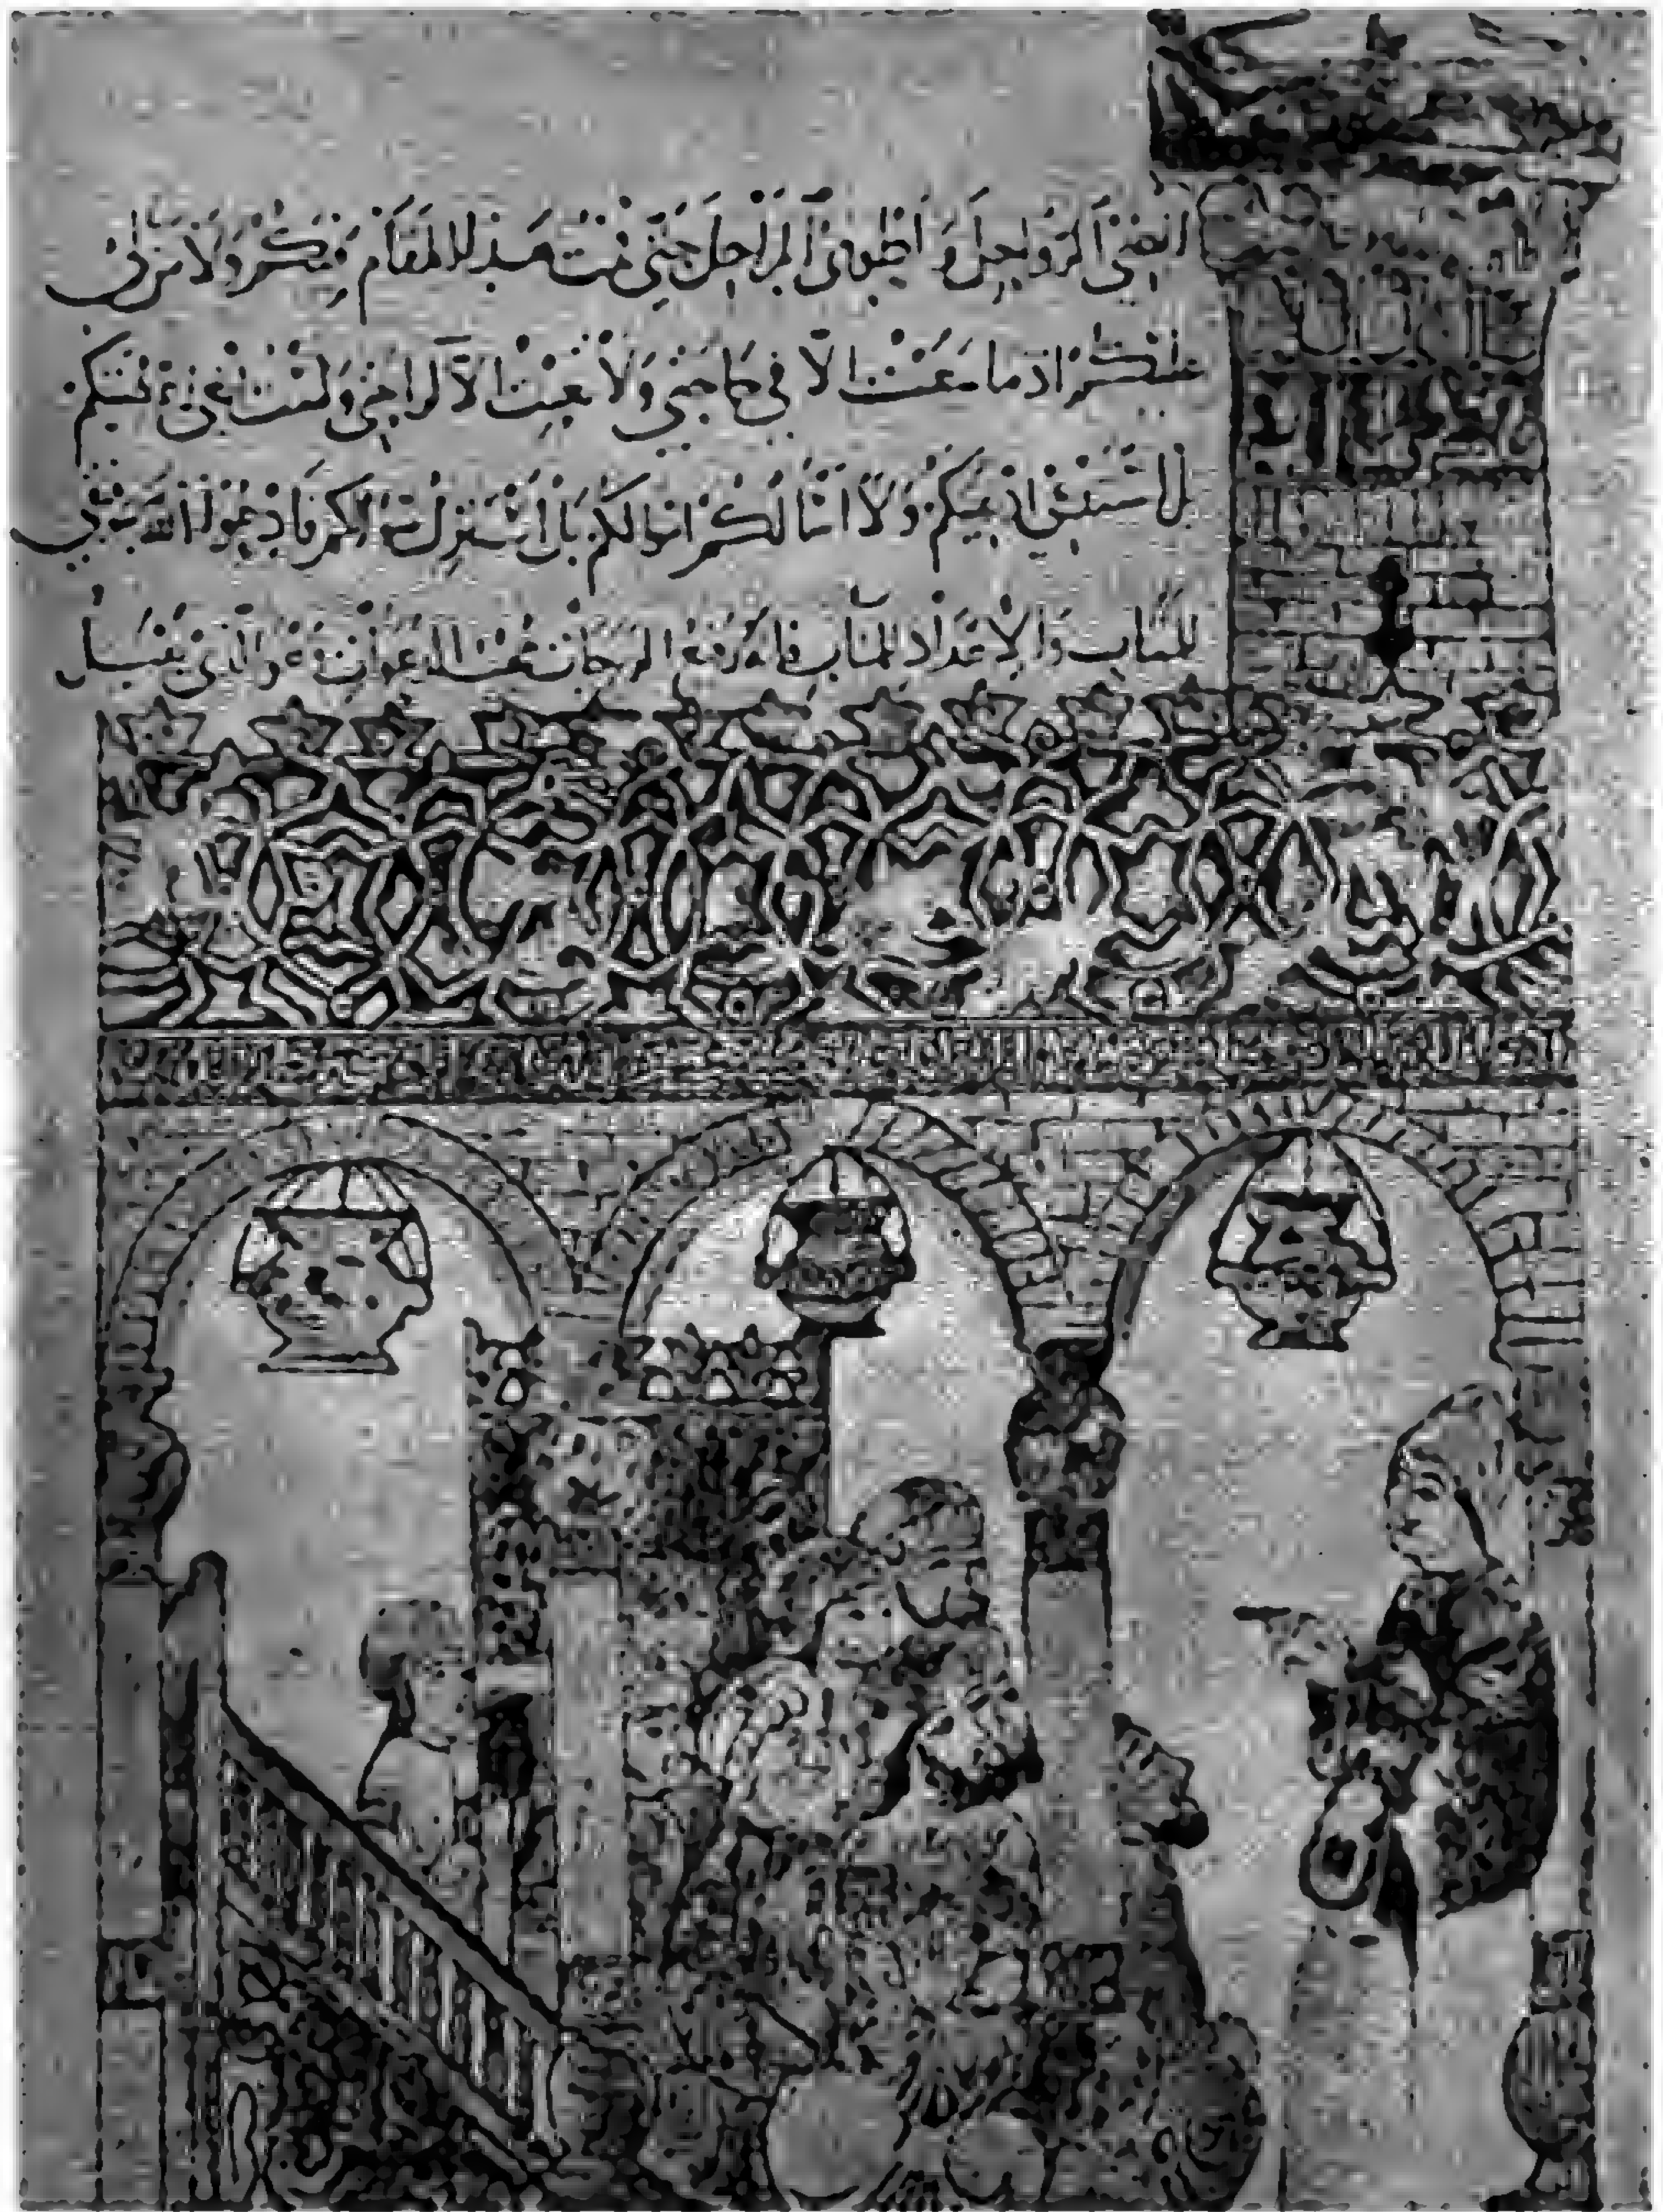 انضى الرواحل واطوى المراحل حتى قمت هذا المقام فيكم ولا من لى
عليكم اذ ما سعيت الا فى حاجتى ولا تعبت الا لراحتى ولست ابغى اعطيتكم
بل استدعى ادعيتكم ولا اسالكم اموالكم بل استنزل سؤالكم فادعوا الله بتوفيقى
للمتاب والاعداد للمآب فانه رفيع الدرجات مجيب الدعوات وهو الذى يقبل